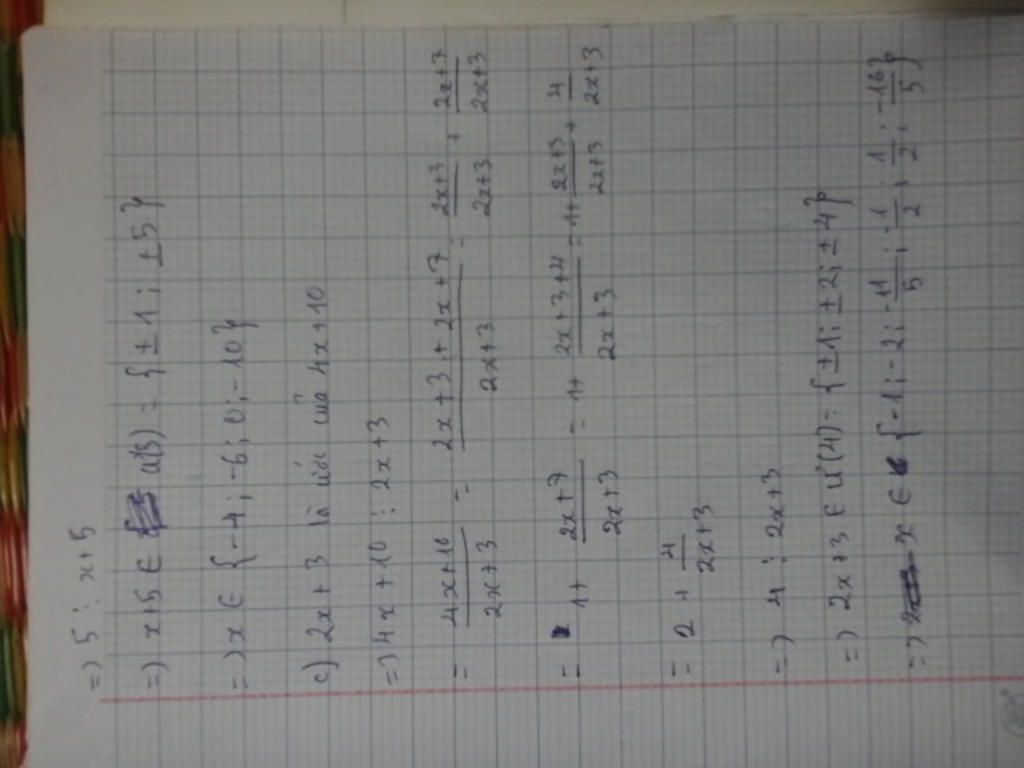 =) 5 ⋮ x+5
=) x+5 ∈ Ư(5) = {±1; ±5}
=) x ∈ {-4; -6; 0; -10}
c) 2x+3 là ước của 4x+10
=) 4x+10 ⋮ 2x+3
= 4x+10/2x+3 = 2x+3+2x+7/2x+3 = 2x+3/2x+3 + 2x+7/2x+3
= 1+ 2x+7/2x+3 = 1+ 2x+3+4/2x+3 = 1+ 2x+3/2x+3 + 4/2x+3
= 2 + 4/2x+3
=) 4 ⋮ 2x+3
=) 2x+3 ∈ Ư(4) = {±1; ±2; ±4}
=) x ∈ {-1; -2; -11/5; -1/2; 1/2; -16/5}